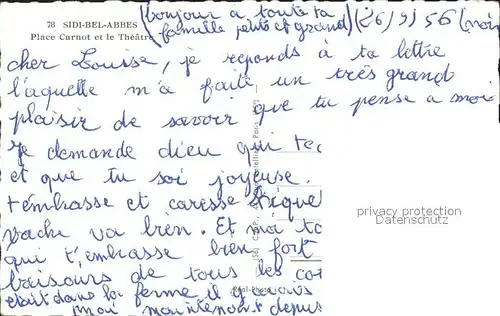 78 SIDI-BEL-ABBES
Place Carnot et le Théâtre
(bonjour a toute ta
famille petits et grand)
(26/9/56 (moi
cher Louise, je reponds à ta lettre
l'aquelle m'a faite un très grand
plaisir de savoir que tu pense a moi
Je demande dieu qui te
et que tu soi joyeuse.
t'embrasse et caresse
vache va bien. Et moi ta
qui t'embrasse bien fort
baisours de tous les cot
etait dans la ferme il y avais
moi maintenant depuis
Real-Photo
privacy protection
Datenschutz